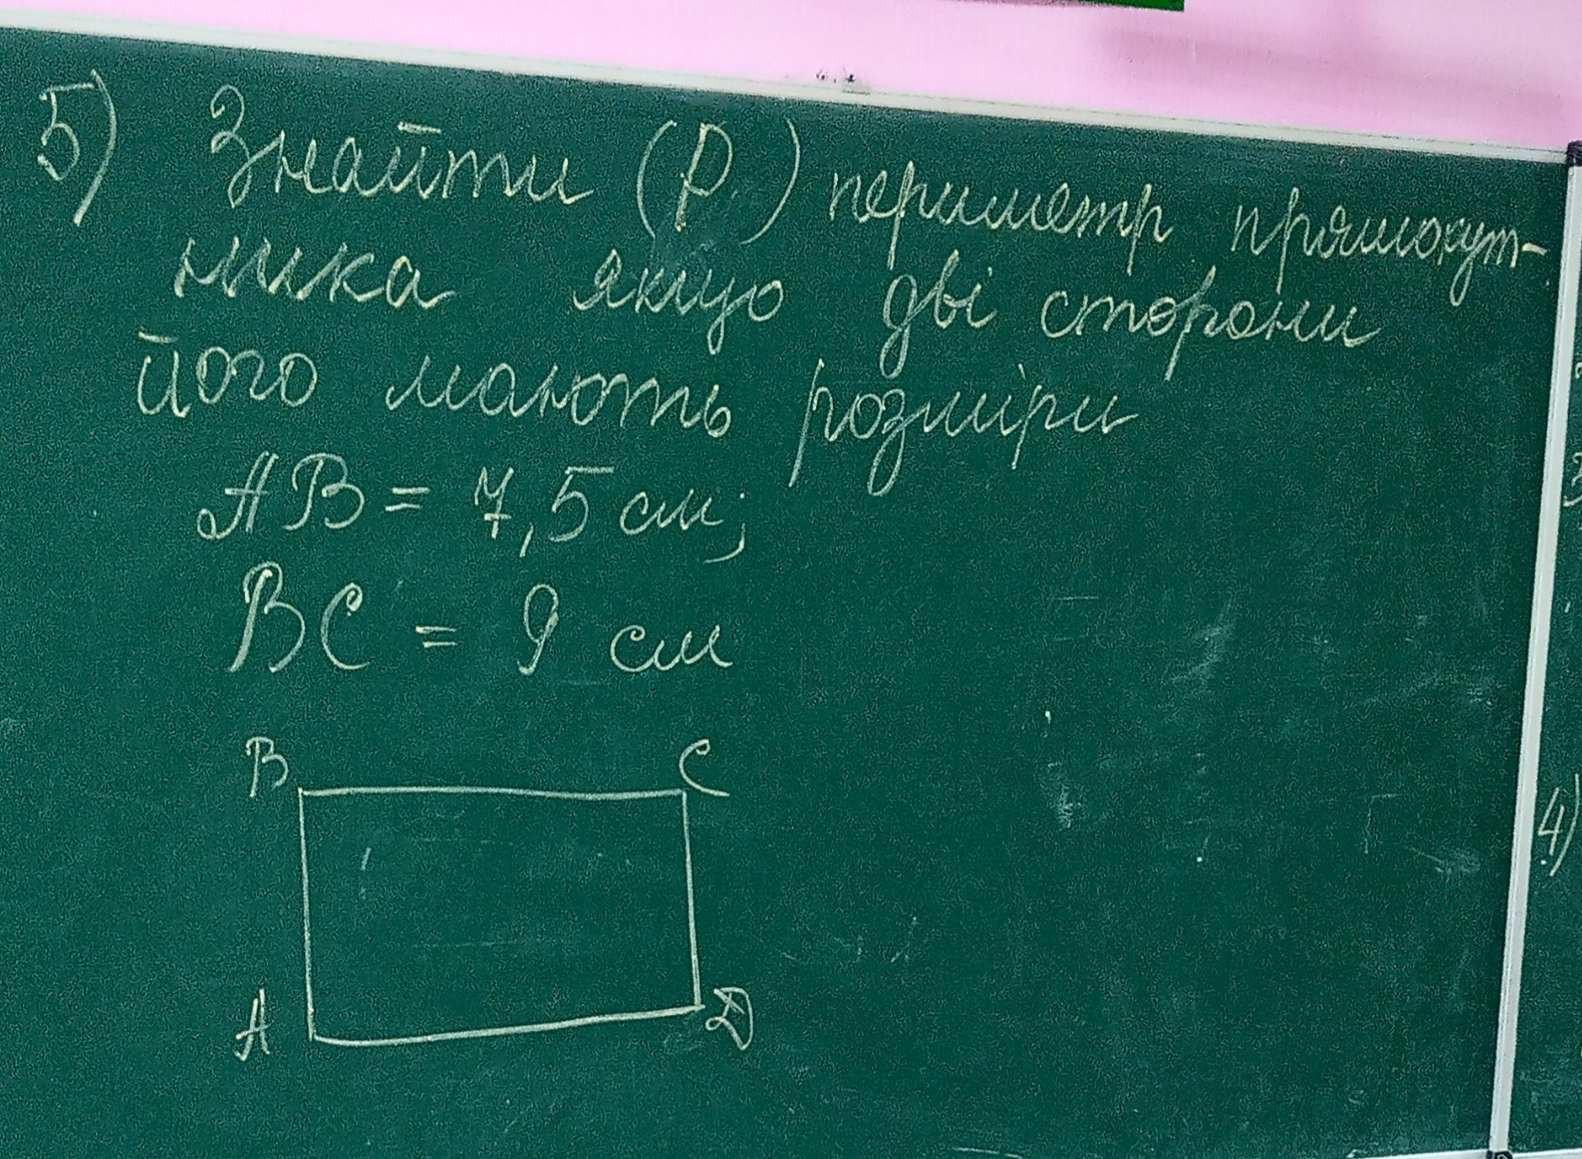 5) Знайти (P) периметр прямокут-
ника якщо дві сторони
його мають розміри
AB = 7,5 см;
BC = 9 см
B C
A D
4)